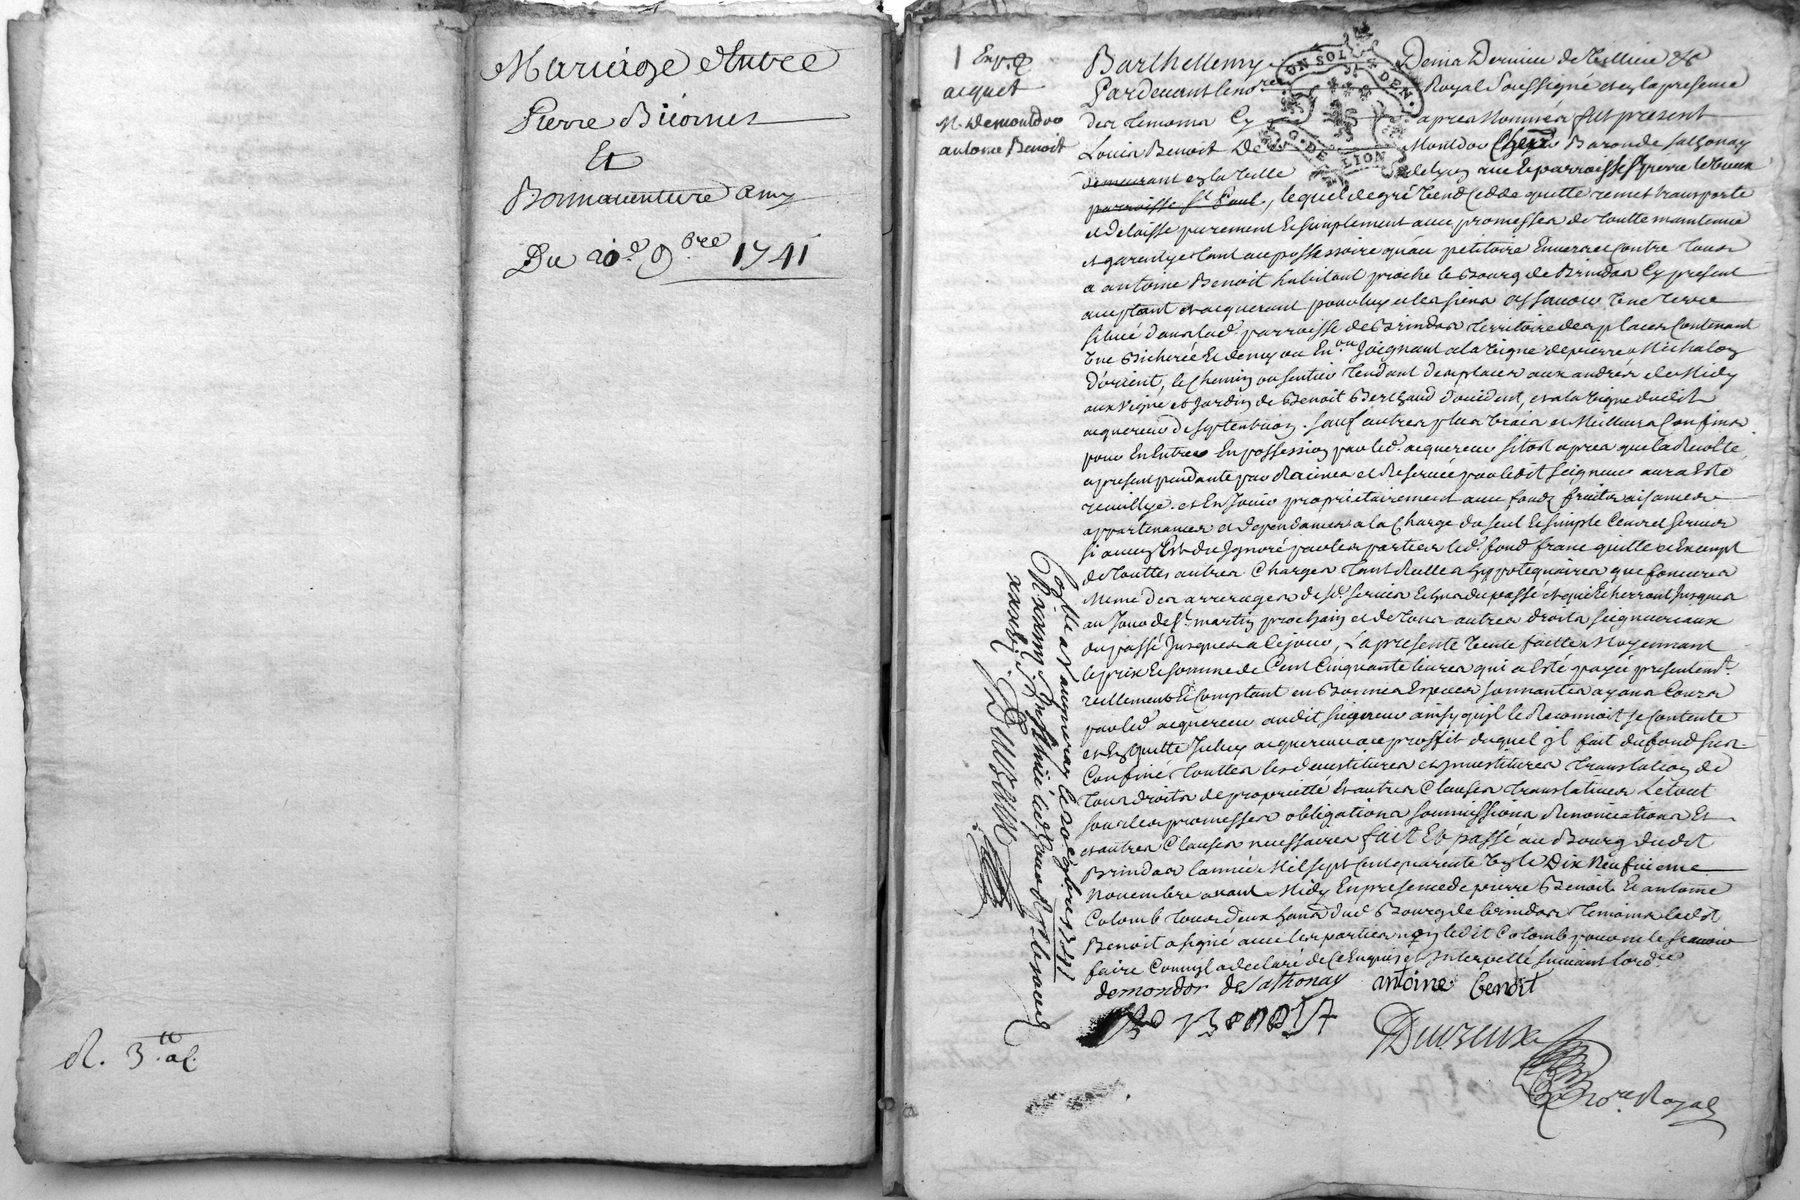 Mariage Entre
Pierre Bicornet
Et
Bonnaventure amy
Du 20e 9bre 1741
R. 3tt
1 Exp.
acquet
Mr Demondor
antoine Benoit
UN SOL DEN.
G. DE LION
Barthellemy Denis Derniere de Messieu
Pardevant le no.re Royal Soussigné et en la presence
des temoins Cy apres Nommés fut present
Louis Benoit De Mondor Baron de Sathonay
demeurant en la ville de lyon rue et parroisse St pierre le vieux
parroisse St Paul, lequel de gré vend cedde quitte remet transporte
et delaisse purement et simplement avec promesses de toutte maintenue
et garentye tant au possessoire qu'au petitoire Envers et Contre tous
a antoine Benoit habitant proche le Bourg de Brindas Cy present
aceptant et acquerant pour luy et les siens assavoir une terre
situé dans lad. parroisse de Brindas territoire des places Contenant
une Bicherée Et demy ou Enon Joignant a la vigne de pierre Michalon
d'orient, le chemin ou sentier tendant des places aux andrés de Midy
aux vigne et Jardin de Benoit Berthaud d'occident, et a la vigne dudit
acquereur de septentrion. Sauf autres plus vrais et Meilleurs Confins
pour En Entrer En possession par led. acquereur sitost apres que la Recolte
a present pendante par Racines et Reservée par ledit Seigneur aura Esté
recuillye. et En Jouir proprietairement avec fondz fruits aisances
appartenances et dependances a la Charge du seul Et simple Cens et Servis
si aucun Est du Ignoré par les parties led. fond franc quitte et Exempt
de touttes autres Charges tant Reelles hypotequaires que foncieres
Meme des arrerages desd. servis Echus du passé et qui Echerront Jusques
au Jour de St martin prochain et de tous autres droits seigneuriaux
du passé Jusques a Ce jour, La presente vente faitte Moyennant
le prix Et somme de Cent Cinquante livres qui a Esté payée presentemt
reellement Et Comptant en Bonnes Especes sonnantes ayans Cours
par led acquereur audit Seigneur ainsy qu'il le Reconnoit se Contente
et En quitte Iceluy acquereur au proffit duquel Il fait du fond sus
Confiné touttes les devestitures et Investitures translation de
tous droits de proprietté et autres Clauses translatives Le tout
sous les promesses obligations soumissions Renonciations Et
et autres Clauses necessaires fait Et passé au Bourg dudit
Brindas l'année Mil sept cent quarente Un le Dix Neufvieme
Novembre avant Midy En presence de pierre Benoit Et antoine
Colomb tous deux dud Bourg de brindas temoins ledit
Benoit a signé avec les parties non ledit Colomb pour ne le scavoir
faire Comme Il a declaré de Ce Enquis et Interpellé suivant l'ord.ce
demondor de Sathonay antoine benoit
BENOIT
Devreux
No.re Royal
Con.lle a Vaugneray le 20e 9bre 1741